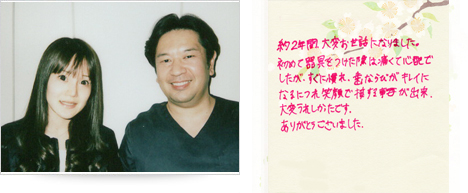 約2年間、大変お世話になりました。
初めて器具をつけた時は痛くて心配で
したが、すぐに慣れ、歯ならびがキレイに
なるにつれ笑顔で 事が出来、
大変うれしかったです。
ありがとうございました。